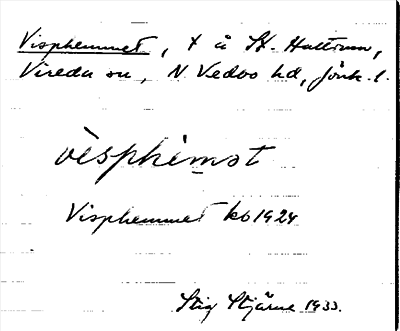 Visphemmet, t å St. Hattrum,
Vireda sn, N Vedbo hd, Jönk. l.
vèsphèmət
Visphemmet kb 1924
Stig Stjärne 1933.